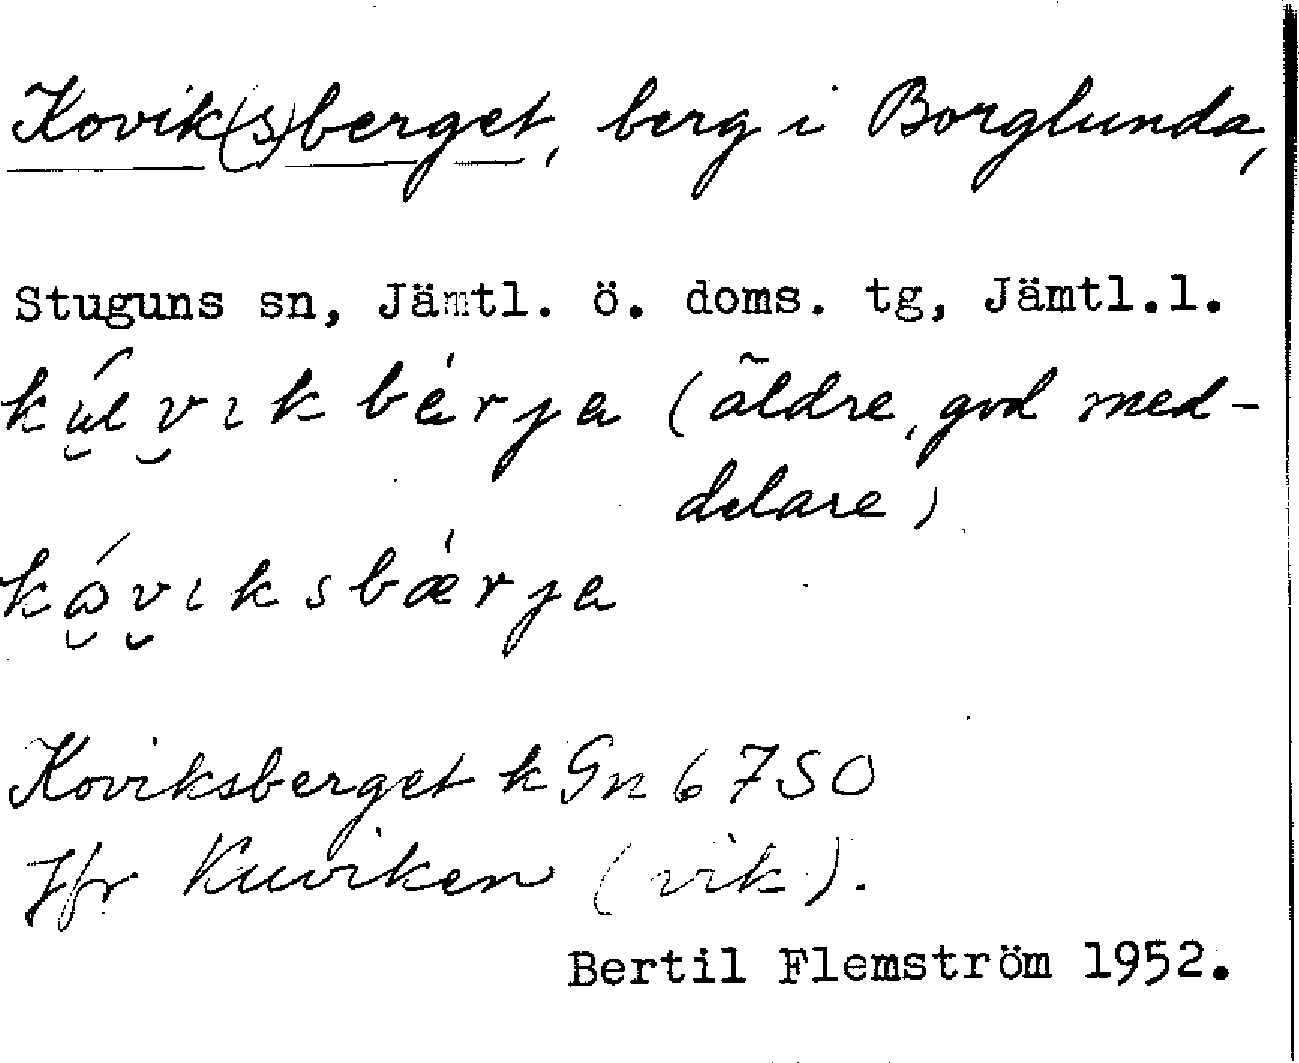 Kovik(s)berget, berg i Borglunda,
Stuguns sn, Jämtl. ö. doms. tg, Jämtl.l.
(äldre, god med-
delare)
Koviksberget k Gn 6750
Jfr Kuviken (vik).
Bertil Flemström 1952.